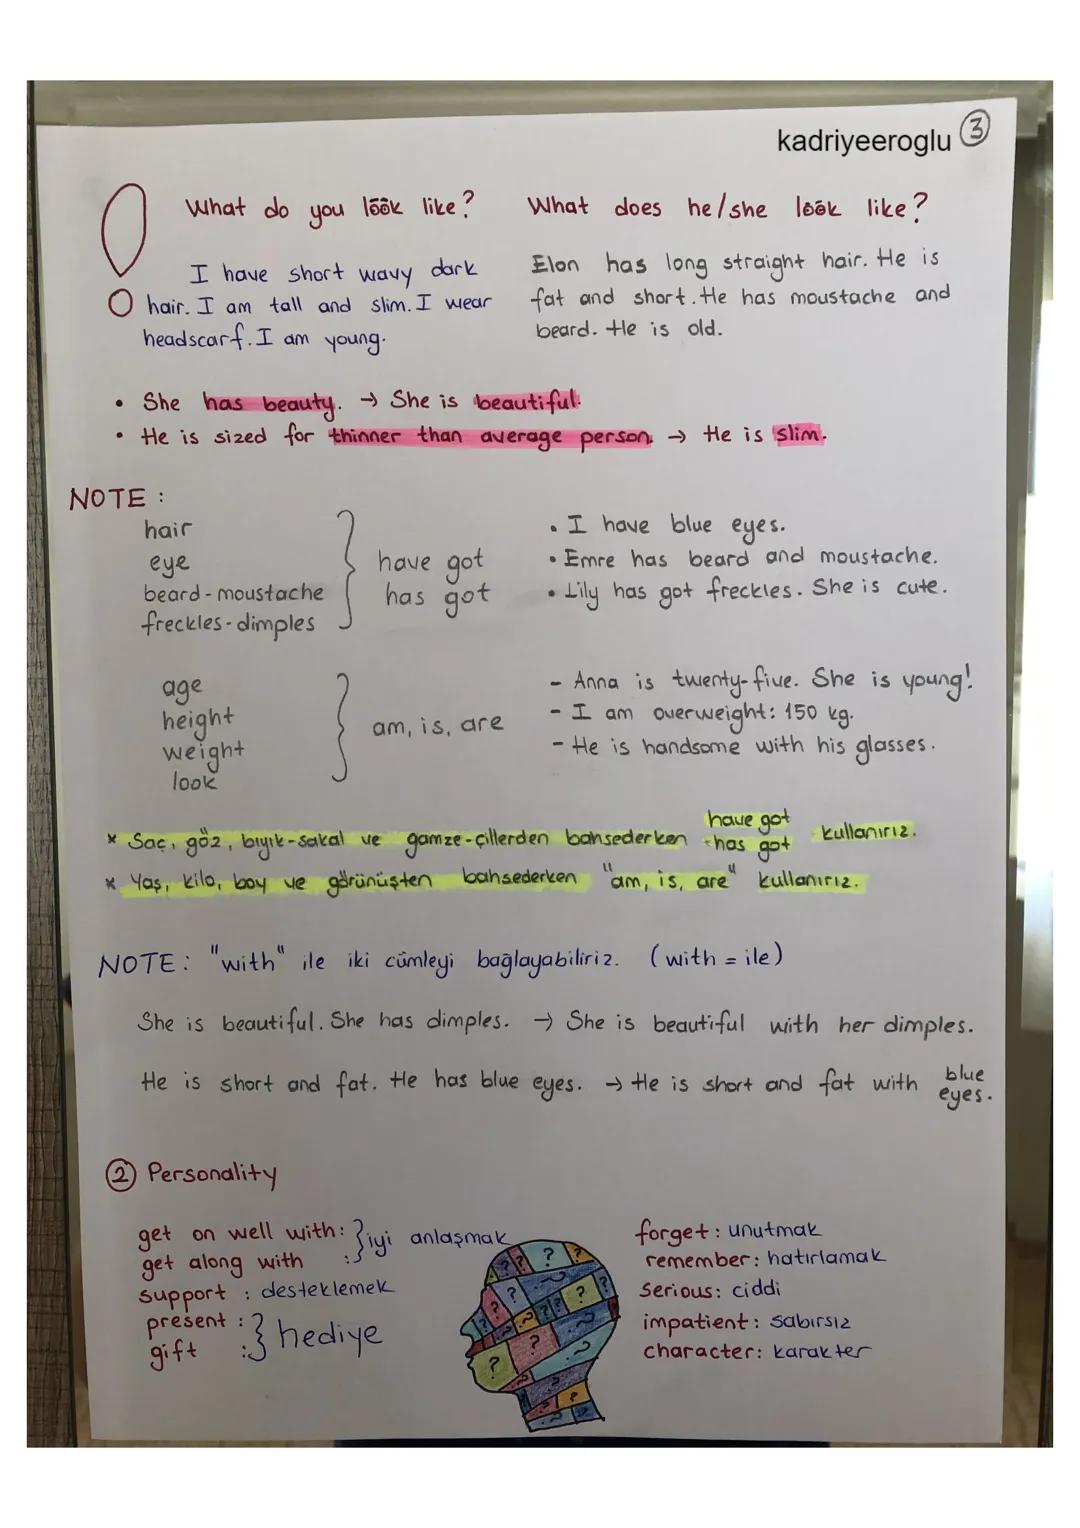 kadriyeeroglu 3
What do you look like?
I have short wavy dark
hair. I am tall and slim. I wear
headscarf. I am young.
What does he/she look like?
Elon has long straight hair. He is
fat and short. He has moustache and
beard. He is old.
• She has beauty. → She is beautiful.
• He is sized for thinner than average person. → He is slim.
NOTE:
hair
eye
beard - moustache
freckles - dimples
have got
has got
• I have blue eyes.
• Emre has beard and moustache.
• Lily has got freckles. She is cute.
age
height
weight
look
am, is, are
- Anna is twenty-five. She is young!
- I am overweight: 150 kg.
- He is handsome with his glasses.
* Saç, göz, bıyık-sakal ve gamze-çillerden bahsederken have got has got kullanırız.
* Yaş, kilo, boy ve görünüşten bahsederken "am, is, are" kullanırız.
NOTE: "with" ile iki cümleyi bağlayabiliriz. (with = ile)
She is beautiful. She has dimples. → She is beautiful with her dimples.
He is short and fat. He has blue eyes. → He is short and fat with blue eyes.
2 Personality
get on well with:
get along with :
iyi anlaşmak
support : desteklemek
present :
gift :
hediye
forget: unutmak
remember: hatırlamak
serious: ciddi
impatient: sabırsız
character: karakter